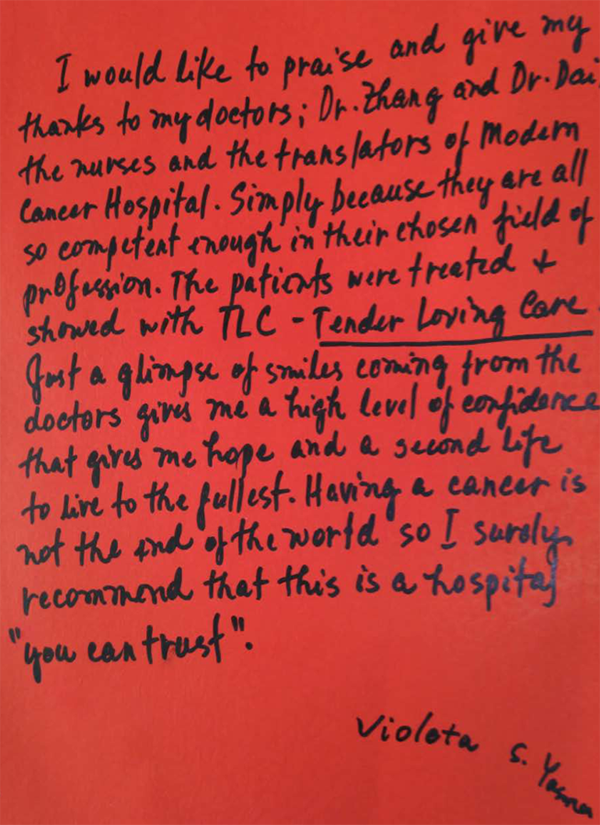 I would like to praise and give my
thanks to my doctors; Dr. Zhang and Dr. Dai,
the nurses and the translators of Modern
Cancer Hospital. Simply because they are all
so competent enough in their chosen field of
profession. The patients were treated +
showed with TLC - Tender Loving Care.
Just a glimpse of smiles coming from the
doctors gives me a high level of confidence
that gives me hope and a second life
to live to the fullest. Having a cancer is
not the end of the world so I surely
recommend that this is a hospital
"you can trust".
Violeta S.